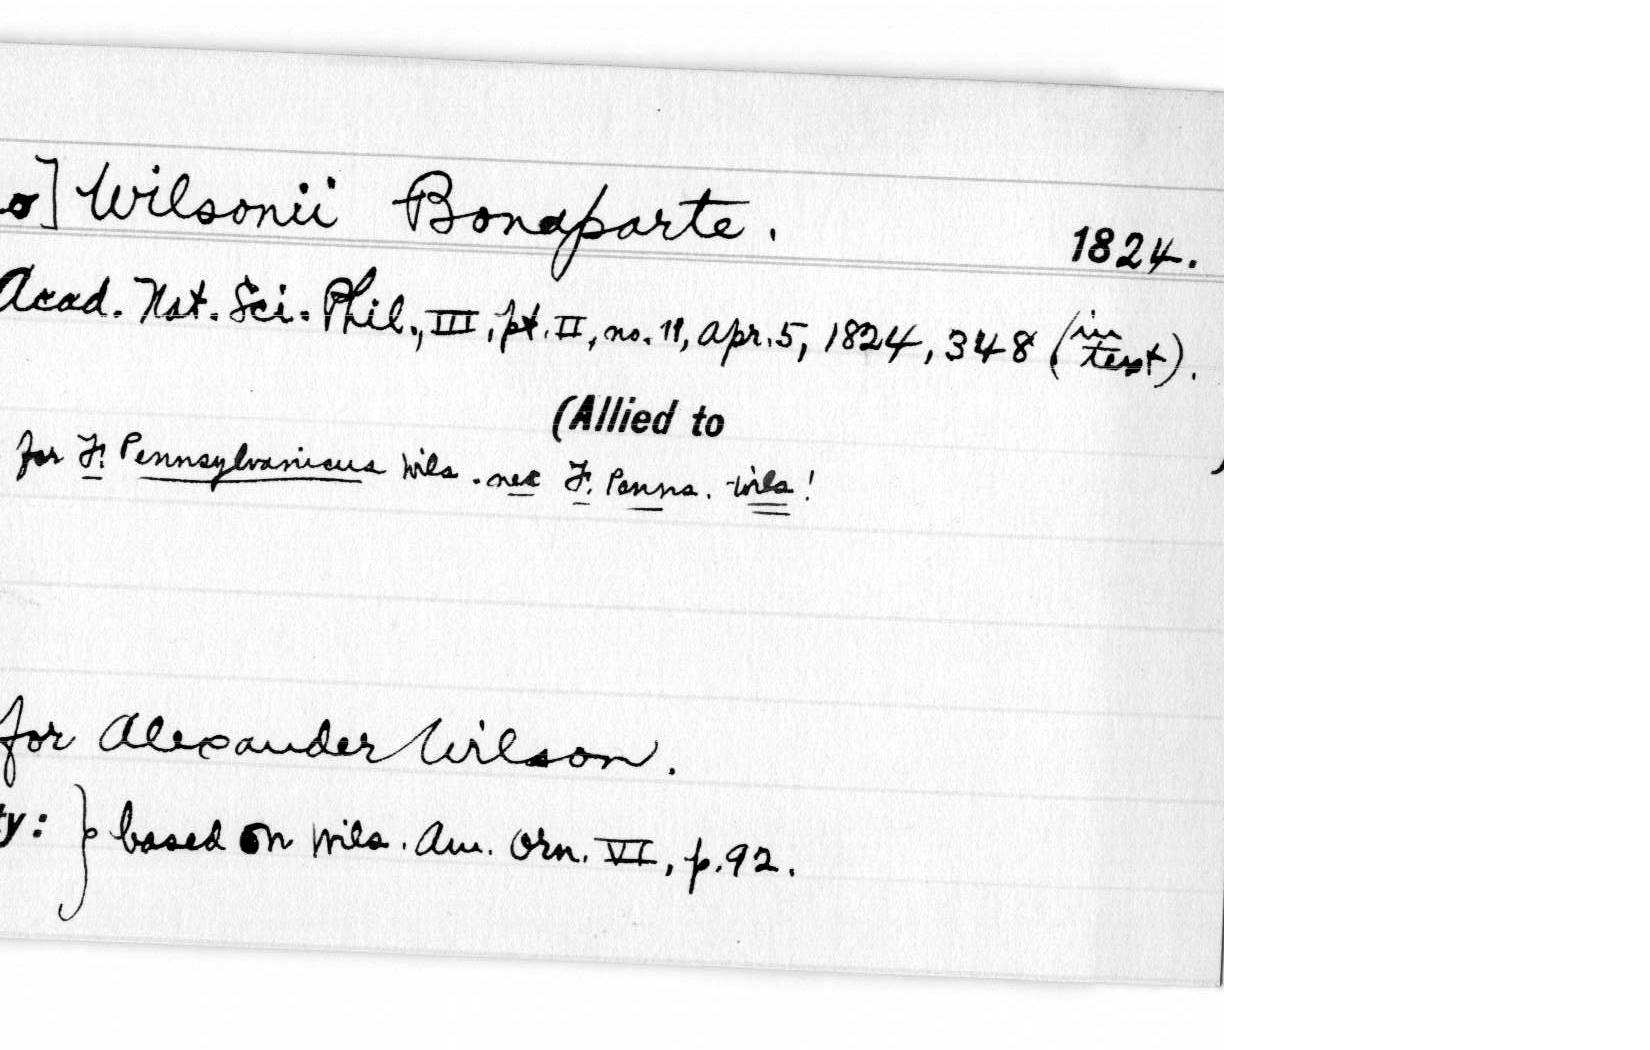 o] Wilsonii Bonaparte. 1824.
Acad. Nat. Sci. Phil., III, pt. II, no. 11, Apr. 5, 1824, 348 (in text).
(Allied to )
for F. Pennsylvanicus Wils. nec F. Penns. Wils!
for Alexander Wilson.
ty: } based on Wils. Am. Orn. VI, p. 92.